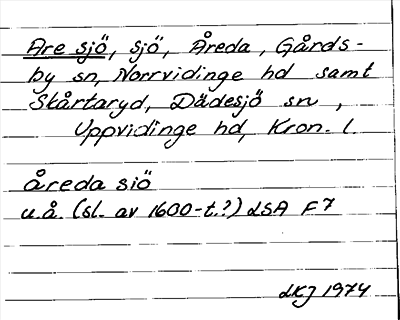 Åre sjö, sjö, Åreda, Gårds-
by sn, Norrvidinge hd samt
Skårtaryd, Dädesjö sn,
Uppvidinge hd, Kron. l.
åreda siö
u.å. (sl. av 1600-t.?) LSA F7
LKJ 1974